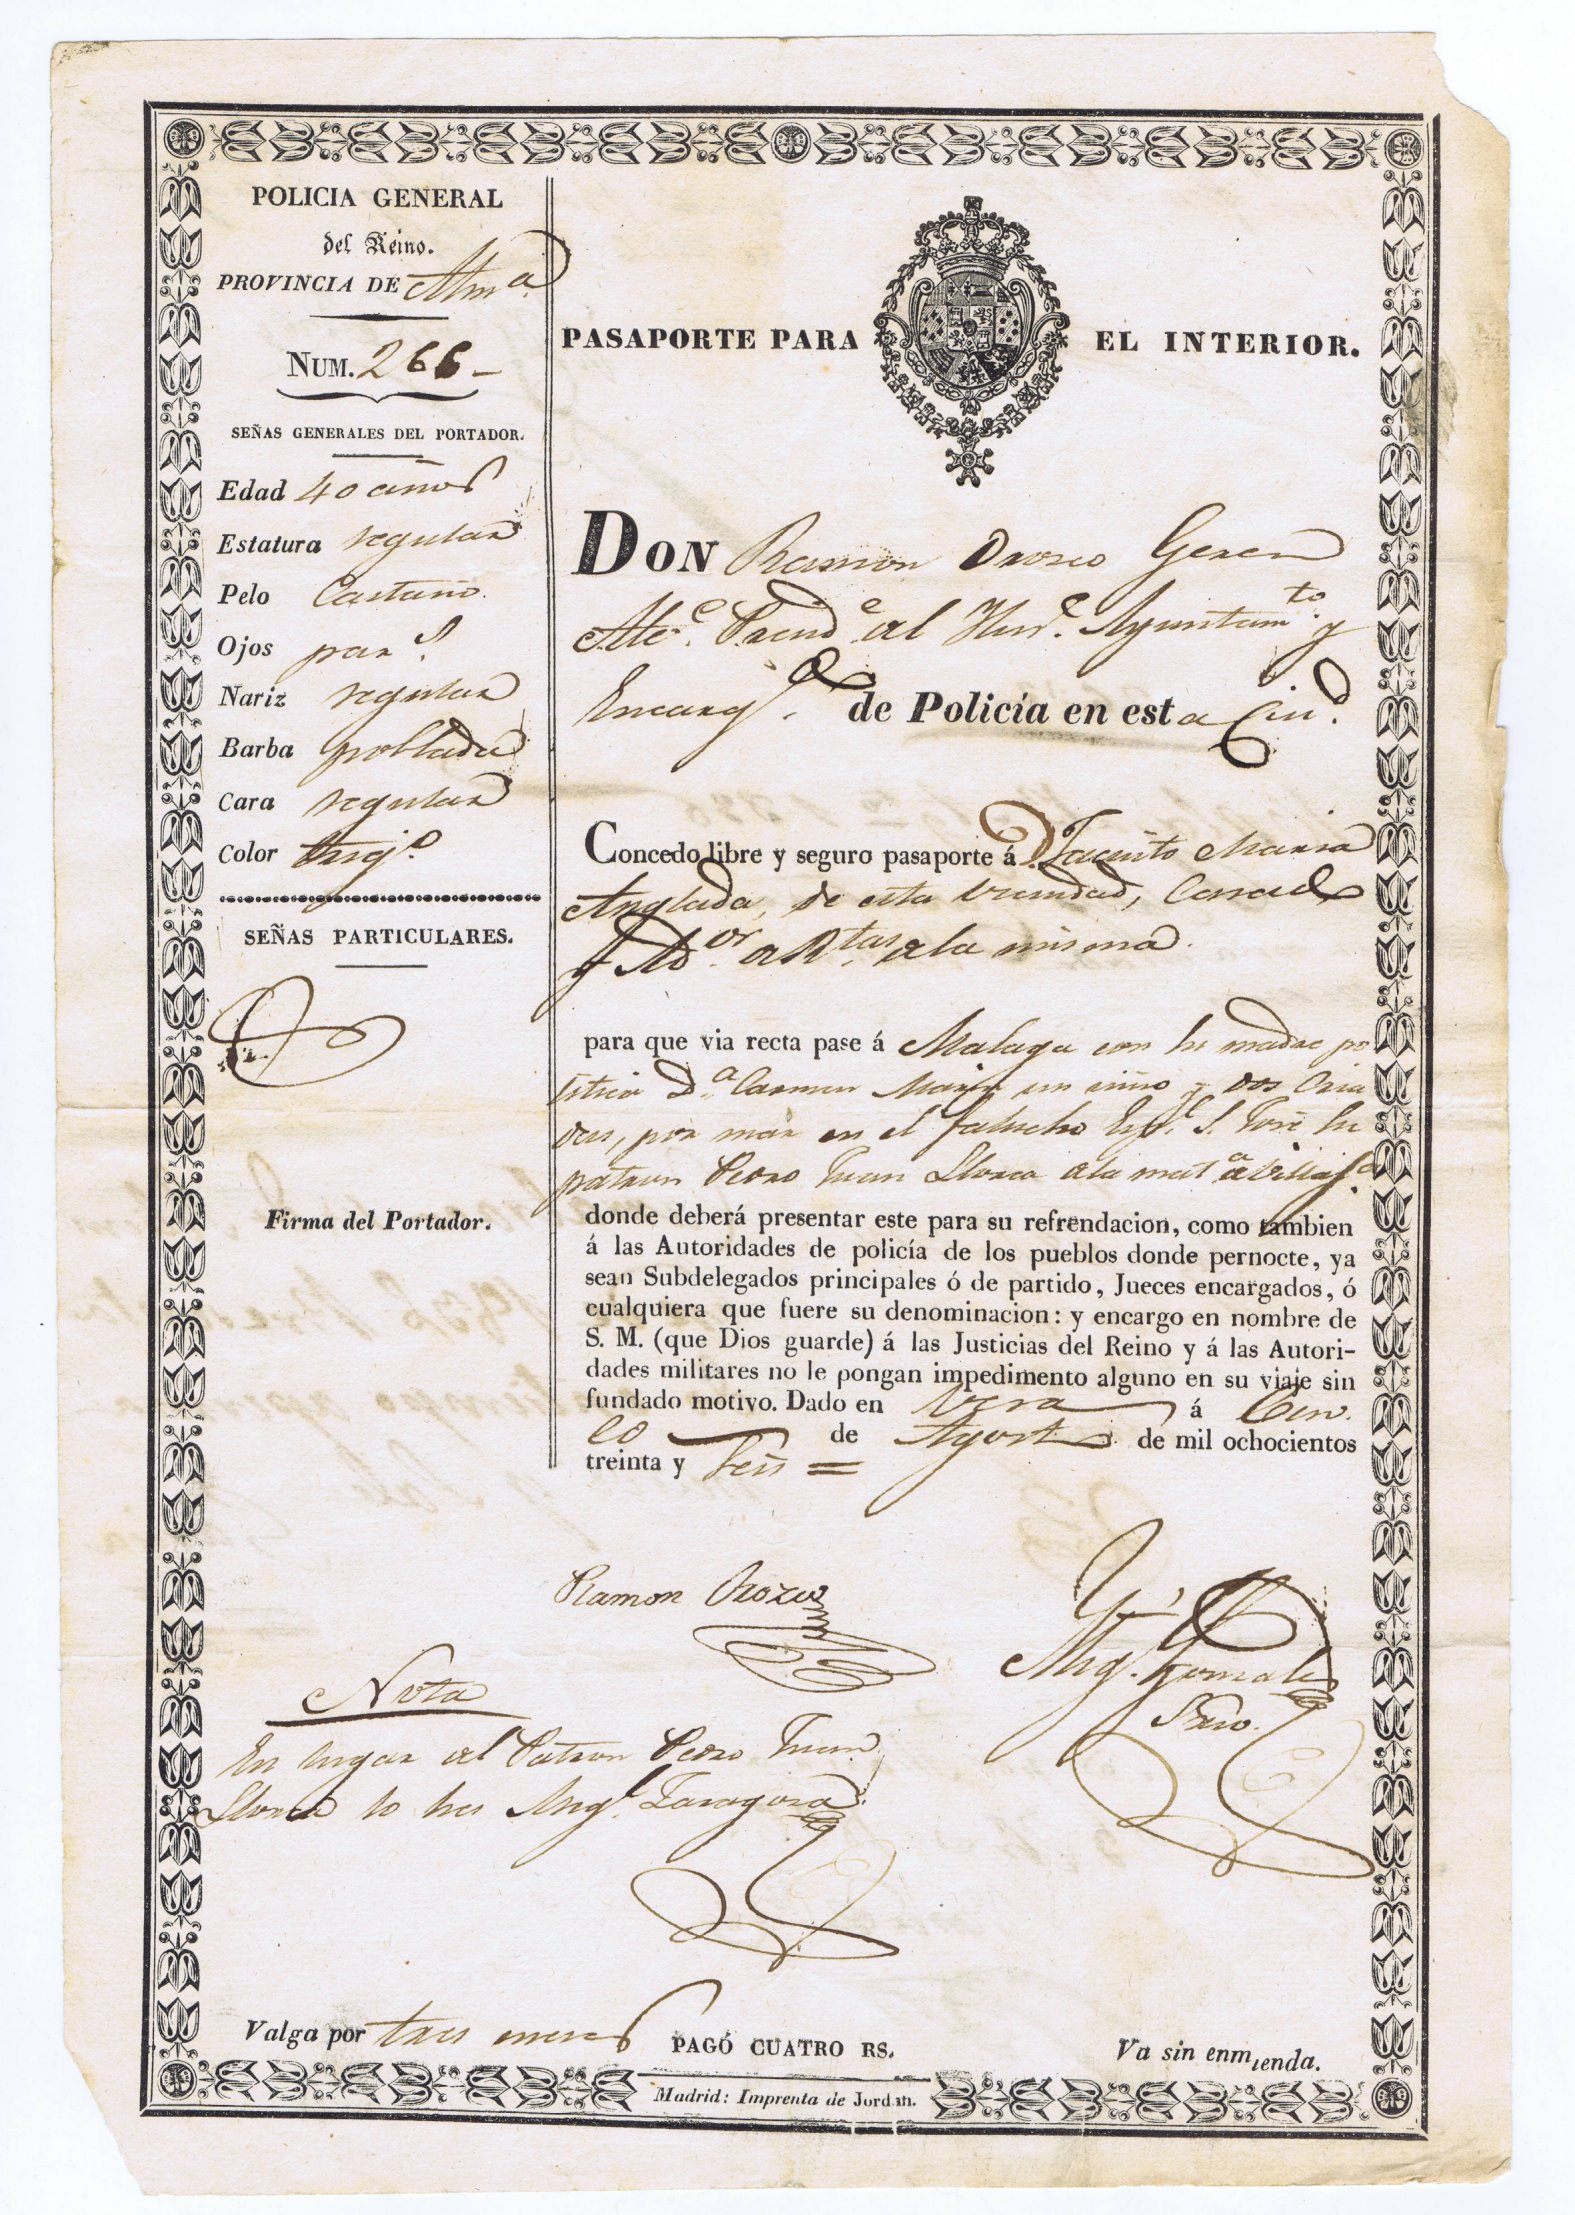 POLICIA GENERAL
del Reino.
PROVINCIA DE Alm.a
NUM. 266
SEÑAS GENERALES DEL PORTADOR.
Edad 40 años
Estatura regular
Pelo Castaño.
Ojos par.s
Nariz regular
Barba poblada
Cara regular
Color Trig.o
SEÑAS PARTICULARES.
Firma del Portador.
PASAPORTE PARA EL INTERIOR.
DON Ramon Orosco Geren
Alc.e Presid.e del Ilus.e Ayuntam.to y
Encarg.do de Policía en esta Ciu.d
Concedo libre y seguro pasaporte á D. Jacinto Maria
Anglada, de esta vecindad, Casado
y Ad.or de R.tas de la misma.
para que via recta pase á Malaga con su madre po
litica D.a Carmen un niño y dos Cria
das, por mar en el falucho Esp.l S. José su
patron Pedro Juan Llorca de la mat.a de
donde deberá presentar este para su refrendacion, como tambien
á las Autoridades de policía de los pueblos donde pernocte, ya
sean Subdelegados principales ó de partido, Jueces encargados, ó
cualquiera que fuere su denominacion: y encargo en nombre de
S. M. (que Dios guarde) á las Justicias del Reino y á las Autori-
dades militares no le pongan impedimento alguno en su viaje sin
fundado motivo. Dado en Vera á Cin-
co de Agosto de mil ochocientos
treinta y Seis =
Ramon Orozco
Ang.l Gonzalez
Srio.
Nota
En lugar del Patron Pedro Juan
Llorca lo es Ang.l Zaragoza
Valga por tres meses
PAGÓ CUATRO RS.
Va sin enmienda.
Madrid: Imprenta de Jordan.